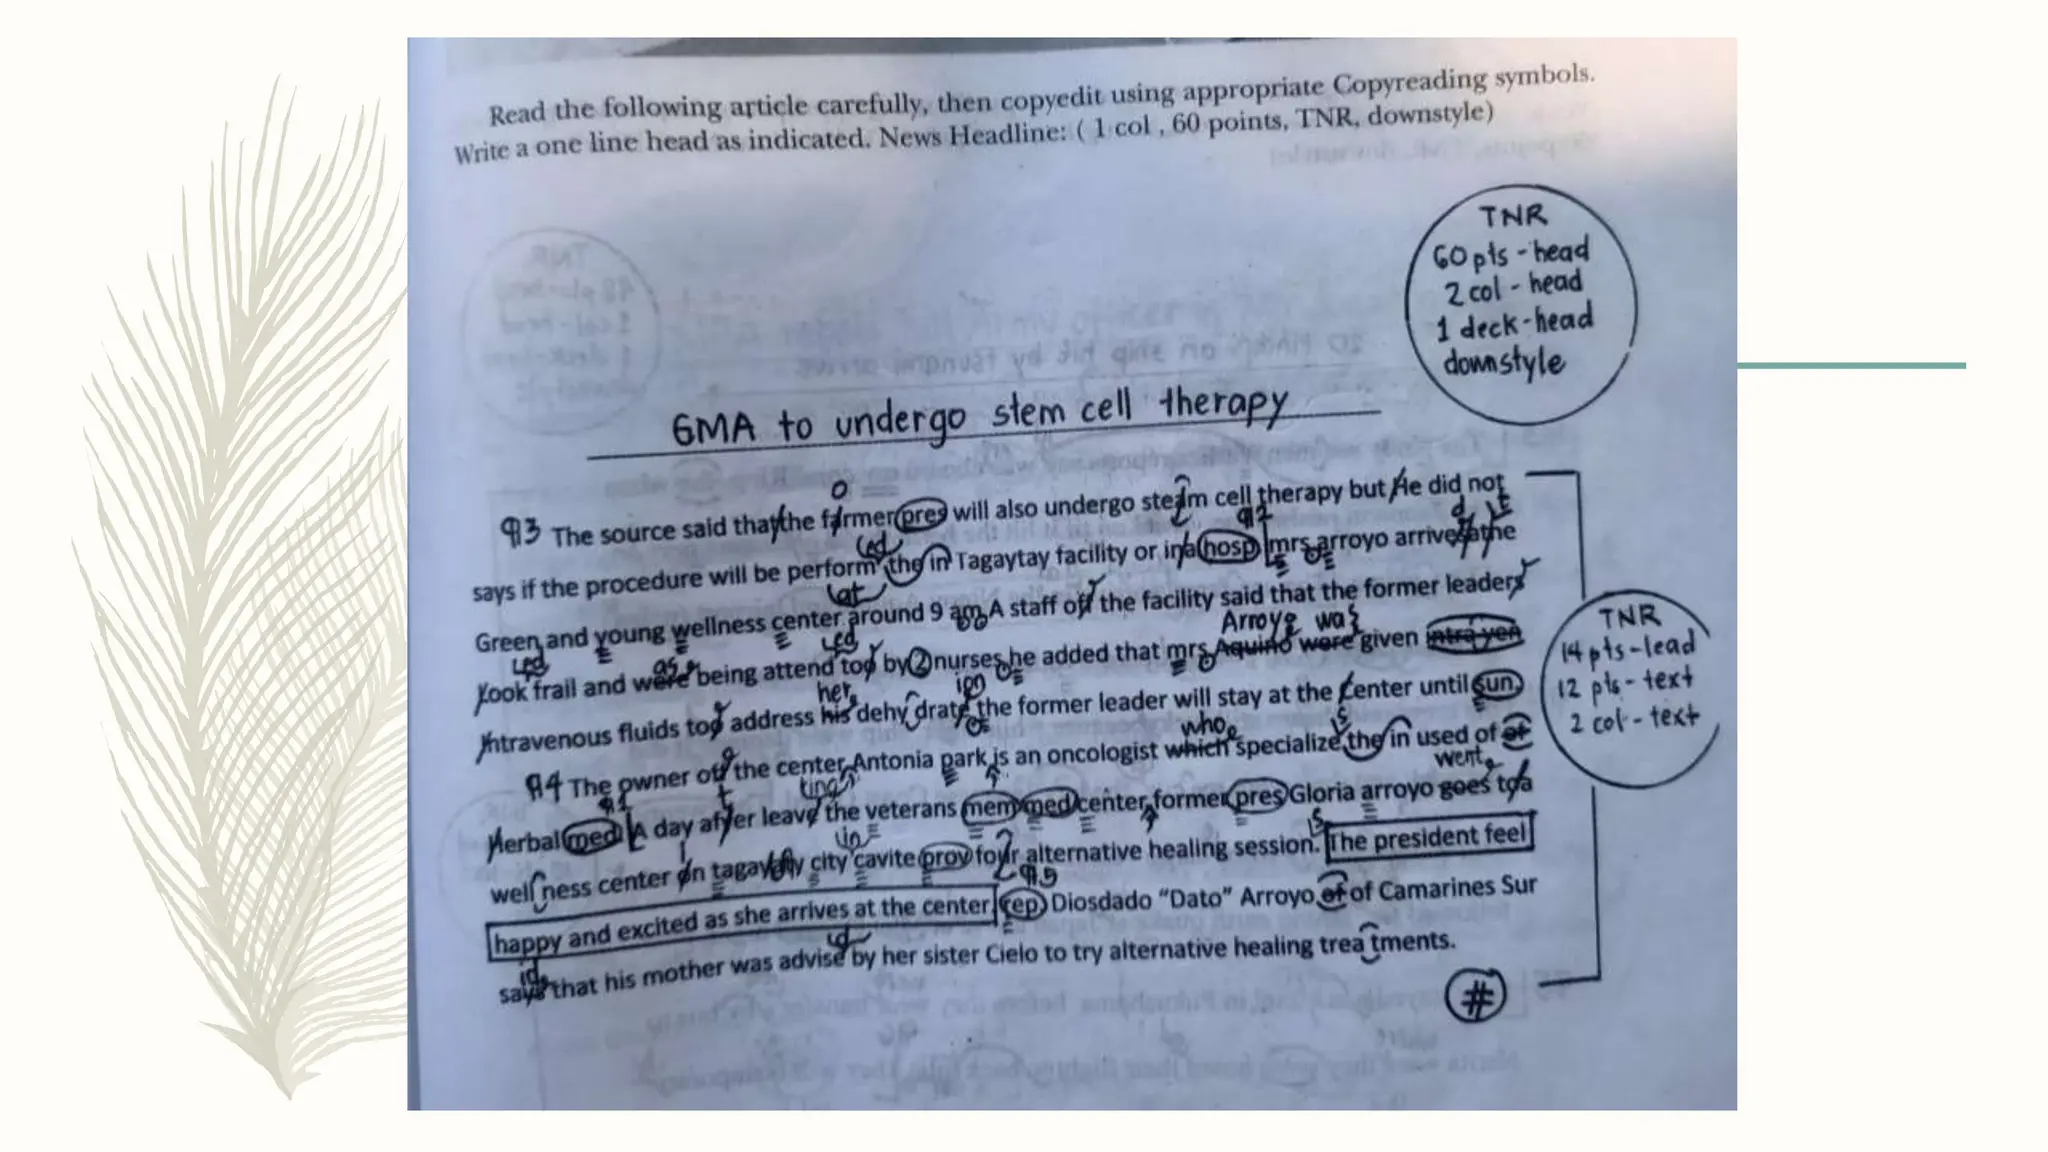 Read the following article carefully, then copyedit using appropriate Copyreading symbols.
Write a one line head as indicated. News Headline: ( 1 col , 60 points, TNR, downstyle)
TNR
60 pts - head
2 col - head
1 deck - head
downstyle
GMA to undergo stem cell therapy
¶3 The source said that the farmer pres will also undergo steam cell therapy but He did not
says if the procedure will be perform the in Tagaytay facility or in a hosp mrs arroyo arrives at the
Green and young wellness center around 9 am A staff off the facility said that the former leaders
Look frail and were being attend too by 2 nurses he added that mrs Aquino were given intra yen
Intravenous fluids too address his dehy drate the former leader will stay at the Center until sun
¶4 The owner off the center Antonia park is an oncologist which specialize the in used of of
Herbal med A day after leave the veterans mem med center former pres Gloria arroyo goes to a
well ness center on city cavite prov four alternative healing session. The president feel
happy and excited as she arrives at the center rep Diosdado “Dato” Arroyo of of Camarines Sur
says that his mother was advise by her sister Cielo to try alternative healing trea tments.
#
TNR
14 pts - lead
12 pts - text
2 col - text